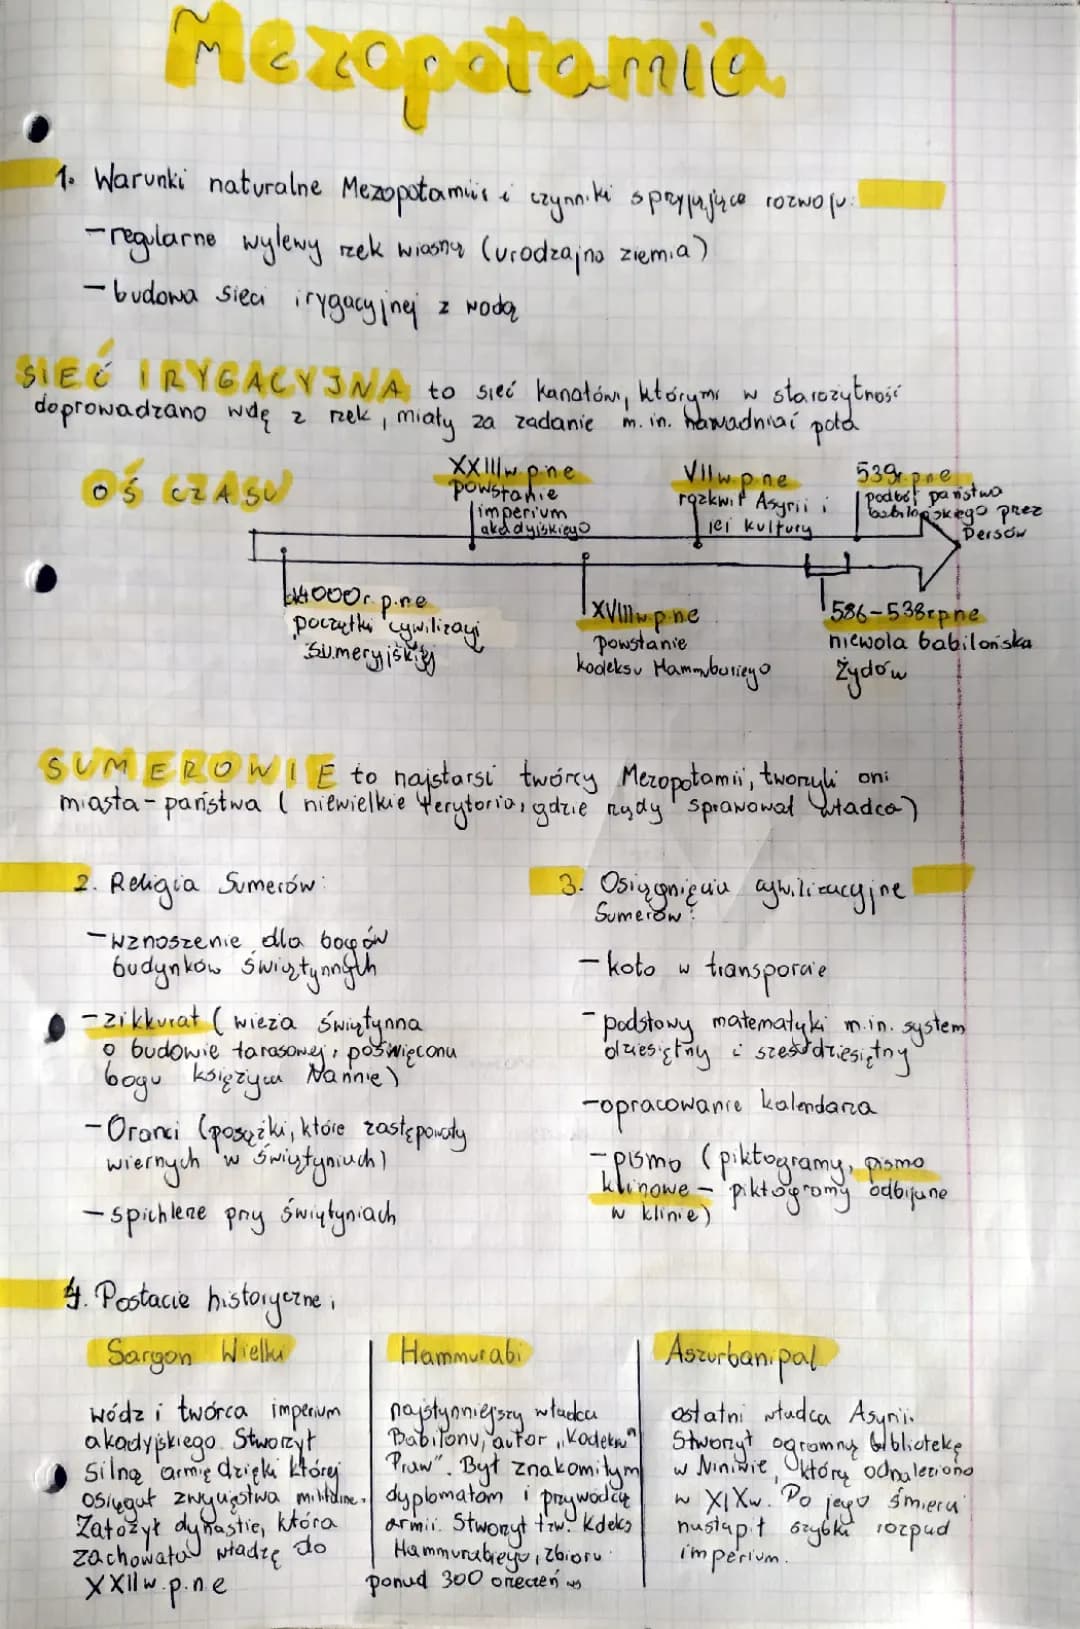 Mezopotamia
1. Warunki naturalne Mezopotamii i czynniki sprzyjające rozwoju:
- regularne wylewy rzek wiosną (urodzajna ziemia)
- budowa sieci irygacyjnej z wodą
SIEĆ IRYGACYJNA to sieć kanałów, którymi w starożytność
doprowadzano wdę z rzek, miały za zadanie m.in. nawadniać pola
OŚ CZASU
XXIIIw p.ne
powstanie
imperium
akadyjskiego
VIIw.p.ne
rozkwit Asyrii i
jej kultury
539r.pne
podbój państwa
babilońskiego przez
Persów
4000r p.ne
początki cywilizacji
sumeryjskiej
XVIIIw.p.ne
powstanie
kodeksu Hammuburiego
586-538r.pne
niewola babilońska
Żydów
SUMEROWIE to najstarsi twórcy Mezopotamii, tworzyli oni
miasta-państwa (niewielkie terytoria, gdzie rządy sprawował władca)
2. Religia Sumerów:
- wznoszenie dla bogów
budynków świątynnych
- zikkurat (wieża świątynna
o budowie tarasowej, poświęcona
bogu księżyca Nannie)
- Oranci (posążki, które zastępowały
wiernych w świątyniach)
- spichlerze przy świątyniach
3. Osiągnięcia cywilizacyjne
Sumerów:
- koło w transporcie
- podstawy matematyki m.in. system
dziesiętny i sześćdziesiętny
- opracowanie kalendarza
- pismo (piktogramy, pismo
klinowe - piktogramy odbijane
w klinie)
4. Postacie historyczne:
Sargon Wielki
wódz i twórca imperium
akadyjskiego. Stworzył
silną armię dzięki której
osiągał zwycięstwa militarne.
Założył dynastie, która
zachowała władzę do
XXIIw.p.n.e
Hammurabi
najsłynniejszy władca
Babilonu, autor „Kodeksu
Praw". Był znakomitym
dyplomatom i przywódcą
armii. Stworzył tzw. Kdeks
Hammurabiego, zbioru
ponad 300 orzeczeń
Aszurbanipal
ostatni władca Asyrii.
Stworzył ogromną bibliotekę
w Niniwie, którą odnaleziono
w XIXw. Po jego śmierci
nastąpił szybki rozpad
imperium.